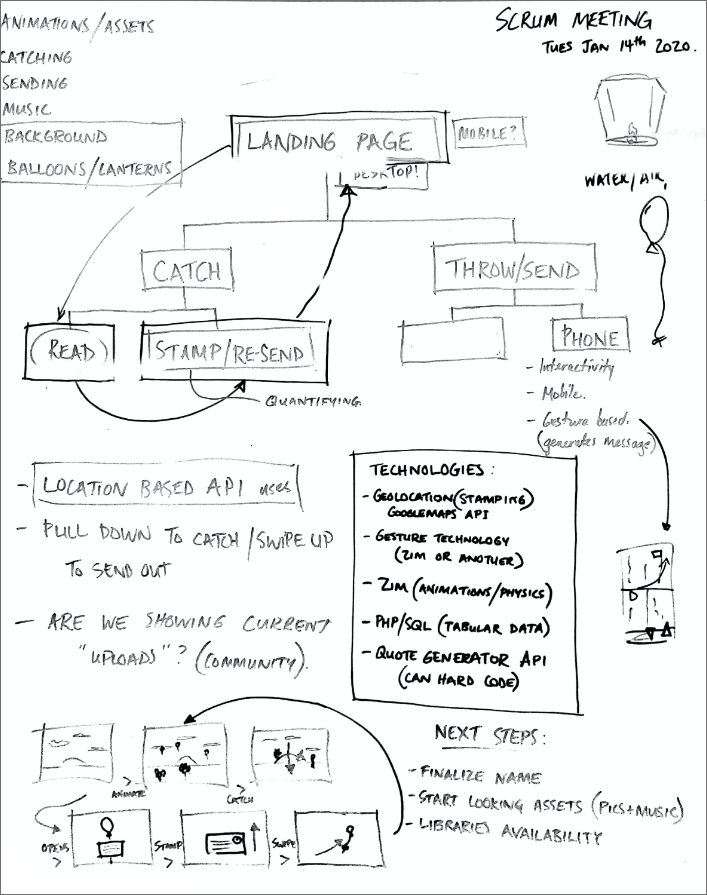 ANIMATIONS/ASSETS
CATCHING
SENDING
MUSIC
BACKGROUND
BALLOONS/LANTERNS
SCRUM MEETING
TUES JAN 14th 2020.
LANDING PAGE
MOBILE?
DESKTOP!
WATER/AIR,
CATCH
THROW/SEND
(READ)
STAMP/RE-SEND
PHONE
QUANTIFYING
- Interactivity
- Mobile.
- Gesture based.
(generates message)
- LOCATION BASED API uses
- PULL DOWN TO CATCH/SWIPE UP
TO SEND OUT
- ARE WE SHOWING CURRENT
"UPLOADS"? (COMMUNITY).
TECHNOLOGIES:
- GEOLOCATION (STAMPING)
GOOGLEMAPS API
- GESTURE TECHNOLOGY
(ZIM OR ANOTHER)
- ZIM (ANIMATIONS/PHYSICS)
- PHP/SQL (TABULAR DATA)
- QUOTE GENERATOR API
(CAN HARD CODE)
ANIMATE >
CATCH >
OPENS >
STAMP >
SWIPE >
NEXT STEPS:
- FINALIZE NAME
- START LOOKING ASSETS (PICS+MUSIC)
- LIBRARIES AVAILABILITY